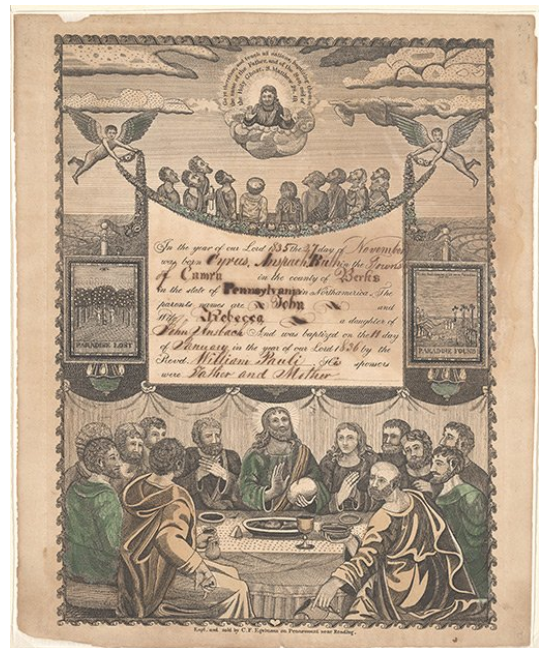 Go ye therefore and teach all nations, baptizing them in
the name of the Father, and of the Son, and of
the Holy Ghost. S. Matthew
In the year of our Lord 1835 the 27 day of November
was born Cyrus, Anspach Ruth in the Towns
of Camru in the county of Berks
in the state of Pennsylvania in Northamerica. The
parents names are John and
Wife Rebecca a daughter of
John Ansbach And was baptized on the 14 day
of January in the year of our Lord 1836 by the
Revd. William Pauli His sponsors
were Father and Mother
PARADISE LOST
PARADISE FOUND
Engd. and sold by C. F. Egelmann on Pennsmount near Reading.